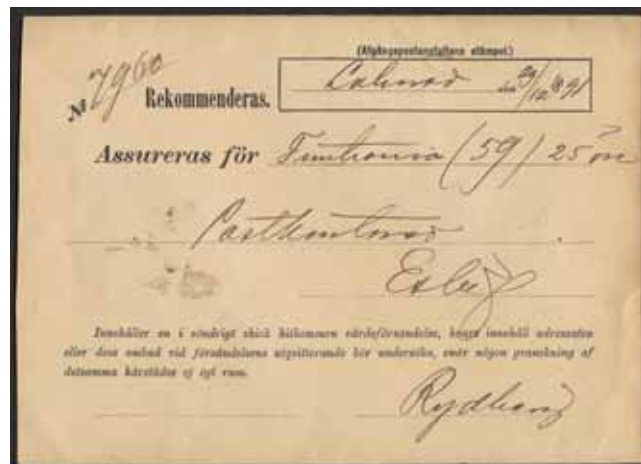 (Afgångspostanstaltens stämpel)
№ 7960 Rekommenderas.
Calmar den 29/12 1891
Assureras för Femtionia (59) 25 öre
Postkontoret
Innehåller en i söndrigt skick hitkommen värdeförsändelse, hvars innehåll adressaten
eller dess ombud vid försändelsens utqvitterande bör undersöka, enär någon granskning af
detsamma härstädes ej egt rum.